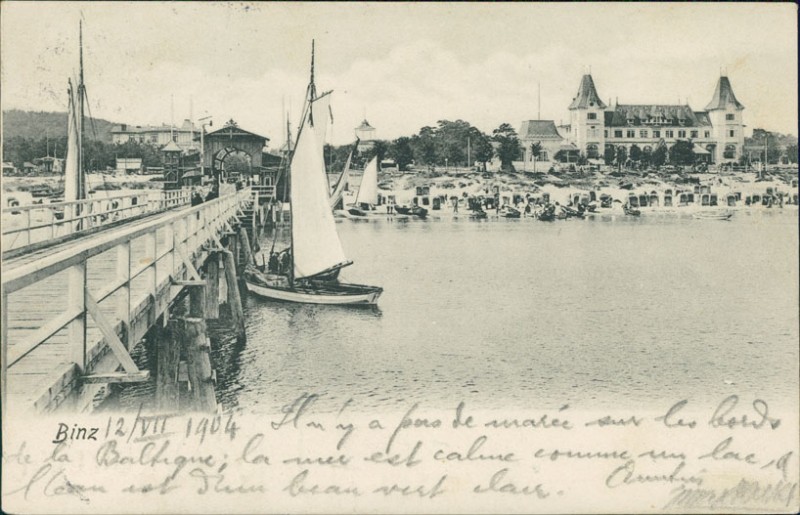 Binz 12/VII 1904 Il n'y a pas de marée sur les bords
de la Baltique; la mer est calme comme un lac, &
l'eau est d'un beau vert clair.
Amitiés